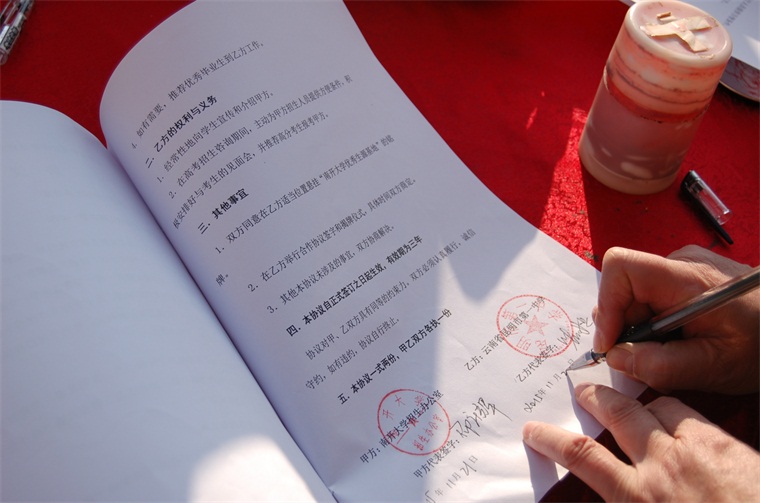 4. 如有需要，推荐优秀毕业生到乙方工作。
二、乙方的权利与义务
1. 经常性地向学生宣传和介绍甲方。
2. 在高考招生咨询期间，主动为甲方招生人员提供方便条件，积
极安排好与考生的见面会，并推荐高分考生报考甲方。
三、其他事宜
1. 双方同意在乙方适当位置悬挂“南开大学优秀生源基地”的铭
牌。
2. 在乙方举行合作协议签字和揭牌仪式，具体时间双方商定。
3. 其他本协议未涉及的事宜，双方协商解决。
四、本协议自正式签订之日起生效，有效期为三年
协议对甲、乙双方具有同等的约束力，双方必须认真履行，诚信
守约，如有违约，协议自行终止。
五、本协议一式两份，甲乙双方各执一份
甲方：南开大学招生办公室
甲方代表签字：
11月21日
乙方：云南省昆明市第一中学
乙方代表签字：
年11月2